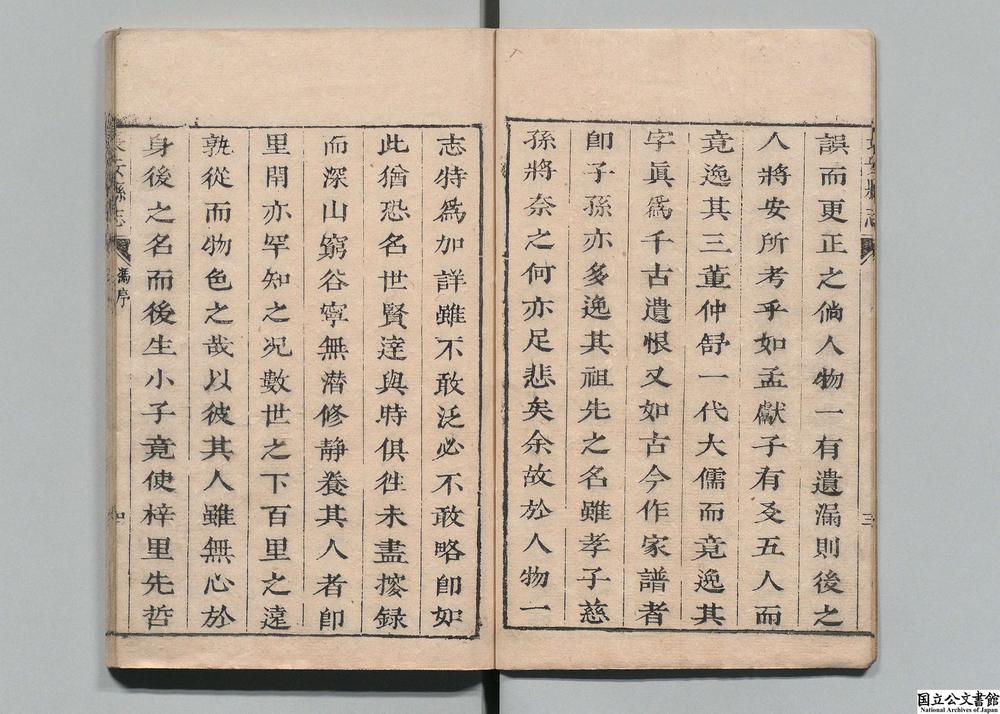 誤而更正之倘人物一有遺漏則後之
人將安所考乎如孟獻子有友五人而
竟逸其三董仲舒一代大儒而竟逸其
字眞爲千古遺恨又如古今作家譜者
卽子孫亦多逸其祖先之名雖孝子慈
孫將奈之何亦足悲矣余故於人物一
志特爲加詳雖不敢泛必不敢略卽如
此猶恐名世賢達與時俱徃未盡搜録
而深山窮谷寧無潜修靜養其人者卽
里閈亦罕知之况數世之下百里之遠
孰從而物色之哉以彼其人雖無心於
身後之名而後生小子竟使梓里先哲
安縣志
馮序
三
四
国立公文書館
National Archives of Japan